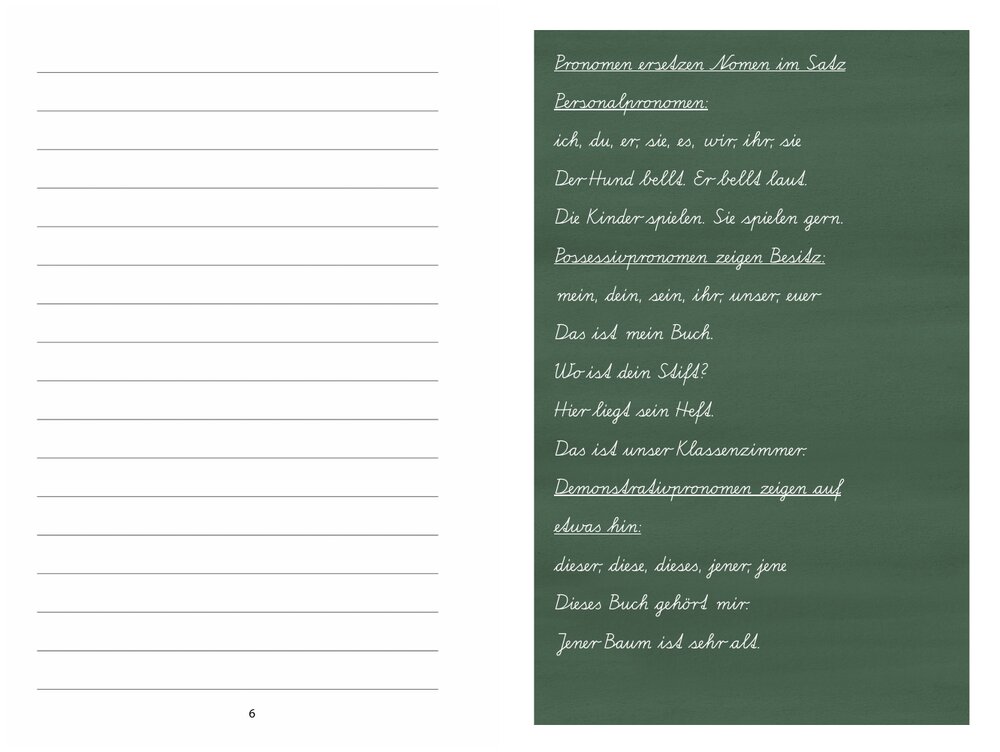 6
Pronomen ersetzen Nomen im Satz
Personalpronomen:
ich, du, er, sie, es, wir, ihr, sie
Der Hund bellt. Er bellt laut.
Die Kinder spielen. Sie spielen gern.
Possessivpronomen zeigen Besitz:
mein, dein, sein, ihr, unser, euer
Das ist mein Buch.
Wo ist dein Stift?
Hier liegt sein Heft.
Das ist unser Klassenzimmer.
Demonstrativpronomen zeigen auf
etwas hin:
dieser, diese, dieses, jener, jene
Dieses Buch gehört mir.
Jener Baum ist sehr alt.